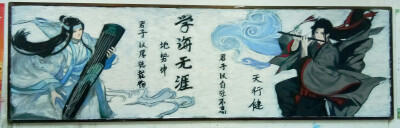 天行健
君子以自强不息
学海无涯
地势坤
君子以厚德载物